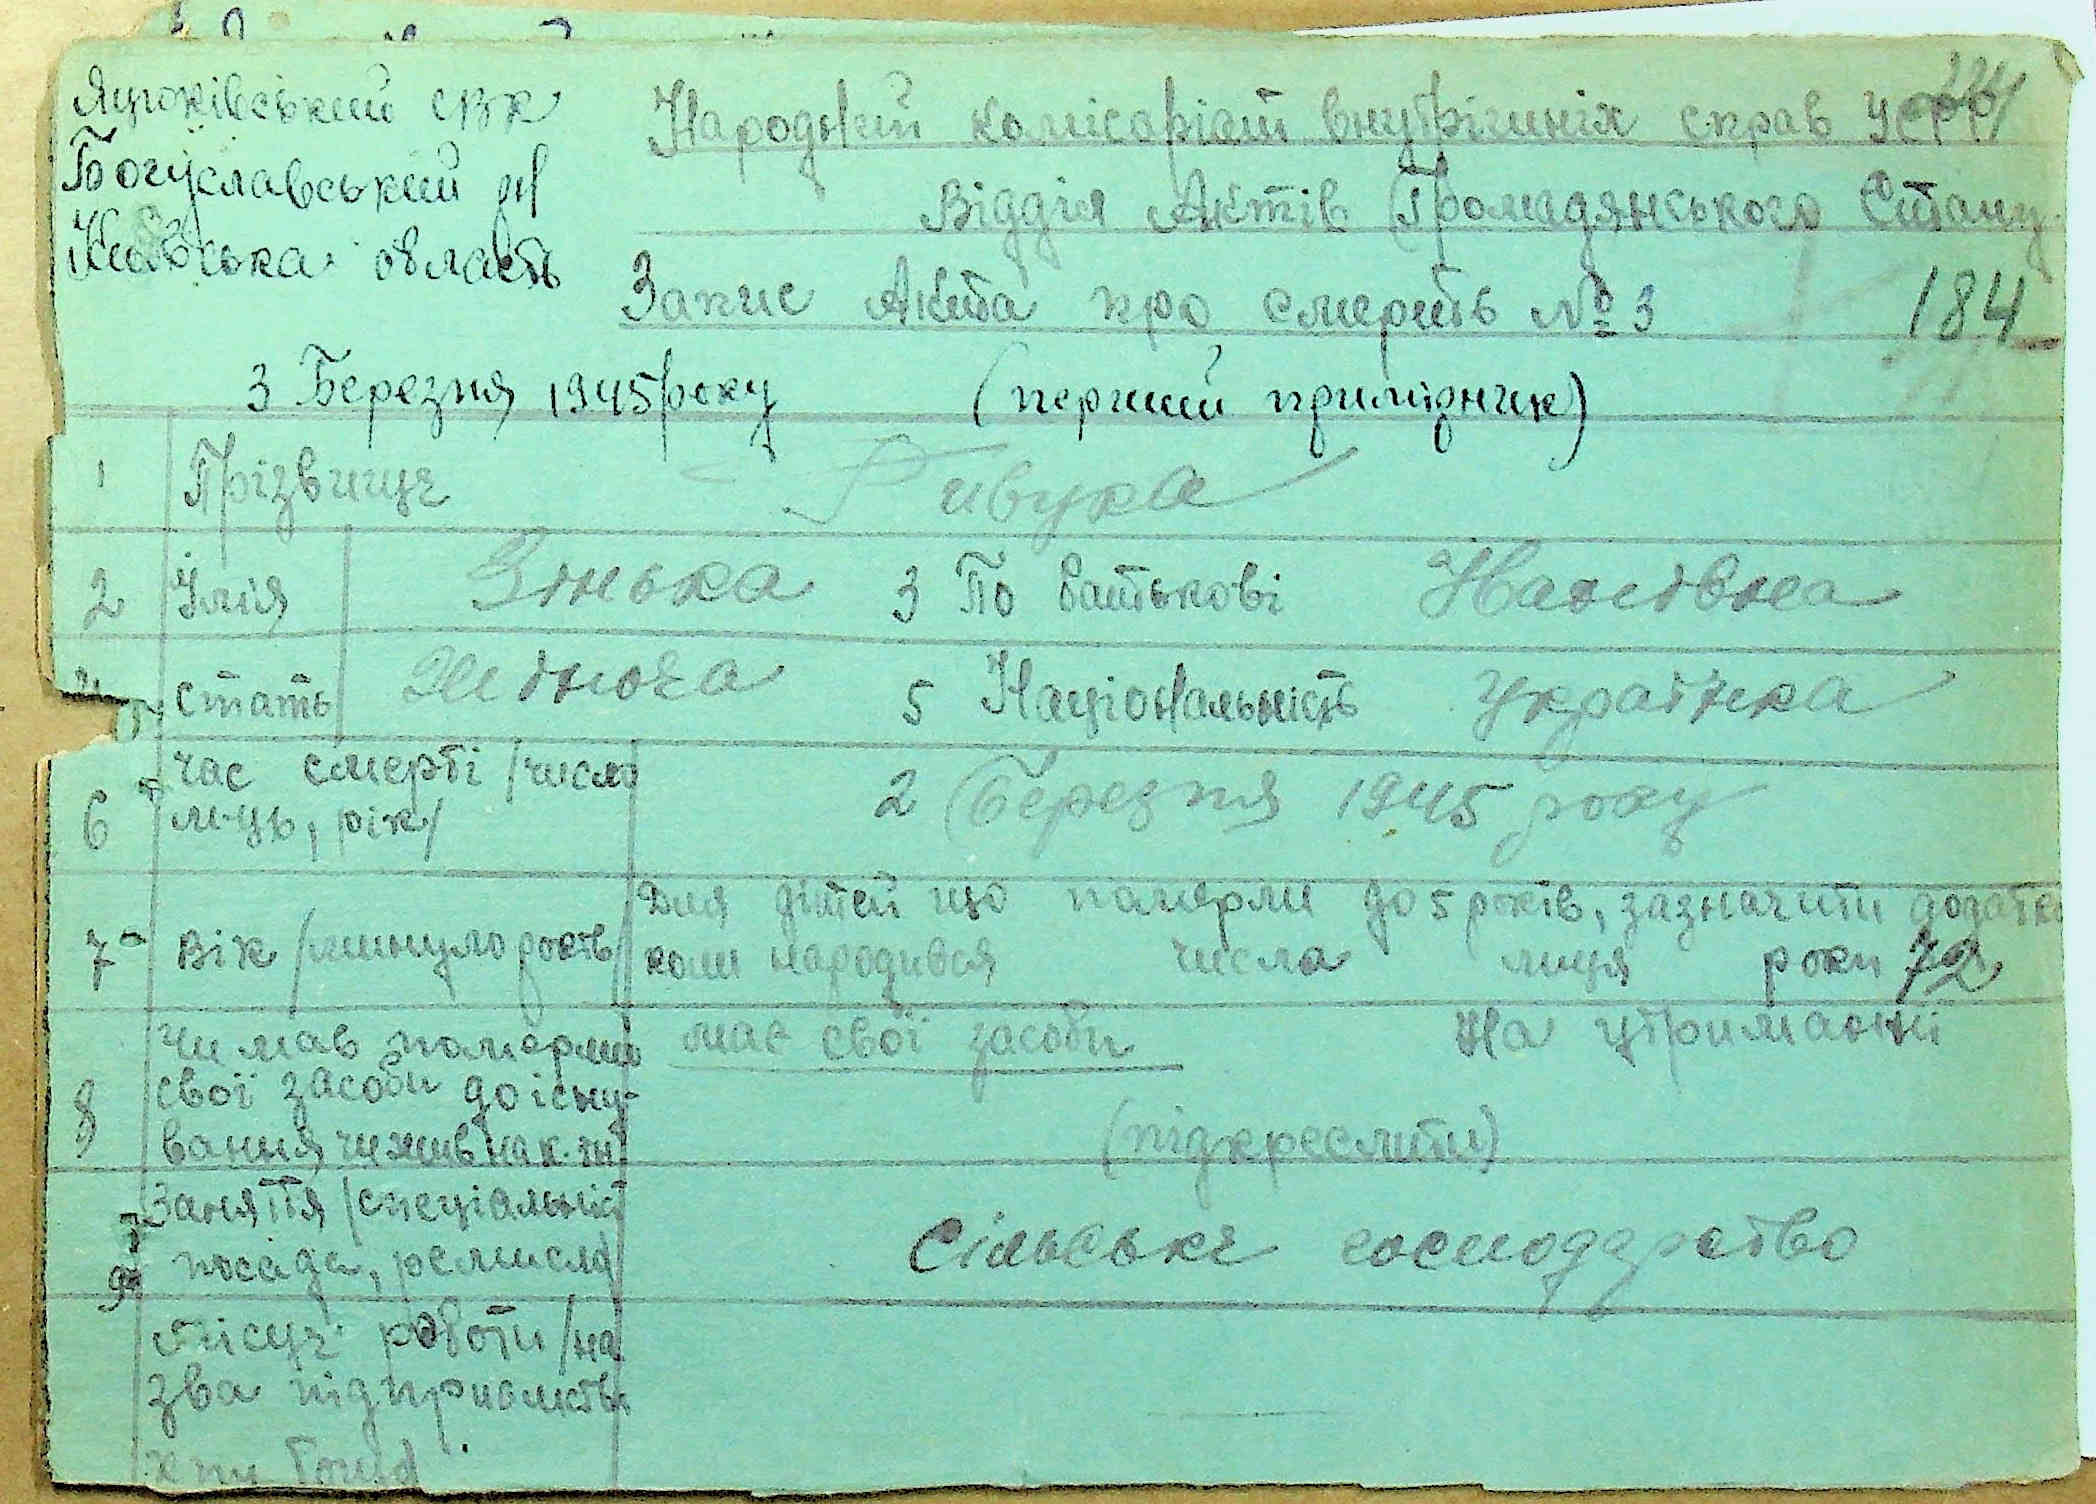 Яцюківський СВК
Богуславський р-н
Київська область
Народний комісаріат внутрішніх справ УСРР
Відділ Актів Громадянського Стану
Запис Акта про смерть № 3
184
3 Березня 1945 року (перший примірник)
1 Прізвище Ривука
2 Ім'я Зінька 3 По батькові
Стать Жіноча 5 Національність Українка
6 час смерті /число
м-ць, рік/ 2 Березня 1945 року
7 вік /минуло років/
Для дітей що померли до 5 років, зазначити додатк
коли народився числа м-ця роки 72
8 чи мав померши
свої засоби до існу-
вання чи жив на
має свої засоби На утриманні
(підкреслити)
9 Заняття /спеціальніс
посада, ремисло/
Сільське господарство
місце роботи /на
зва підприємств